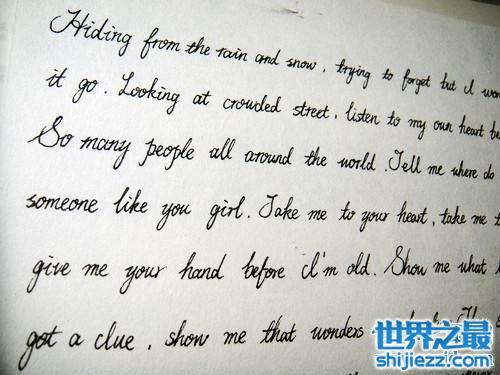 Hiding from the rain and snow, trying to forget but I won
it go. Looking at crowded street, listen to my own heart be
So many people all around the world. Tell me where do
someone like you girl. Take me to your heart, take me t
give me your hand before I'm old. Show me what l
got a clue, show me that wonders
世界之最
shijiezz1.com